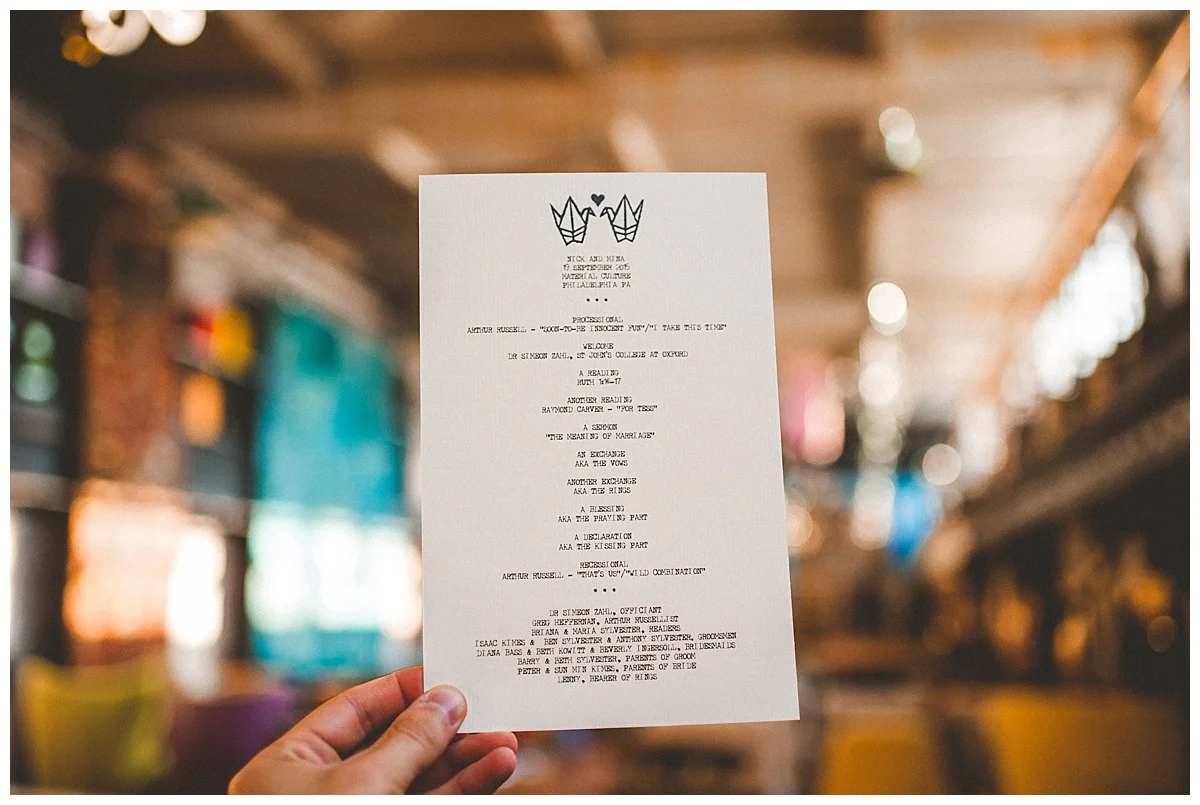 NICK AND MINA
19 SEPTEMBER 2015
MATERIAL CULTURE
PHILADELPHIA PA
PROCESSIONAL
ARTHUR RUSSELL - "SOON-TO-BE INNOCENT FUN"/"I TAKE THIS TIME"
WELCOME
DR SIMEON ZAHL, ST JOHN'S COLLEGE AT OXFORD
A READING
RUTH 1:16-17
ANOTHER READING
RAYMOND CARVER - "FOR TESS"
A SERMON
"THE MEANING OF MARRIAGE"
AN EXCHANGE
AKA THE VOWS
ANOTHER EXCHANGE
AKA THE RINGS
A BLESSING
AKA THE PRAYING PART
A DECLARATION
AKA THE KISSING PART
RECESSIONAL
ARTHUR RUSSELL - "THAT'S US"/"WILD COMBINATION"
DR SIMEON ZAHL, OFFICIANT
GREG HEFFERNAN, ARTHUR RUSSELLIST
BRIANA & MARIA SYLVESTER, READERS
ISAAC KIMES & BEN SYLVESTER & ANTHONY SYLVESTER, GROOMSMEN
DIANA BASS & BETH KOWITT & BEVERLY INGERSOLL, BRIDESMAIDS
BARRY & BETH SYLVESTER, PARENTS OF GROOM
PETER & SUN MIN KIMES, PARENTS OF BRIDE
LENNY, BEARER OF RINGS